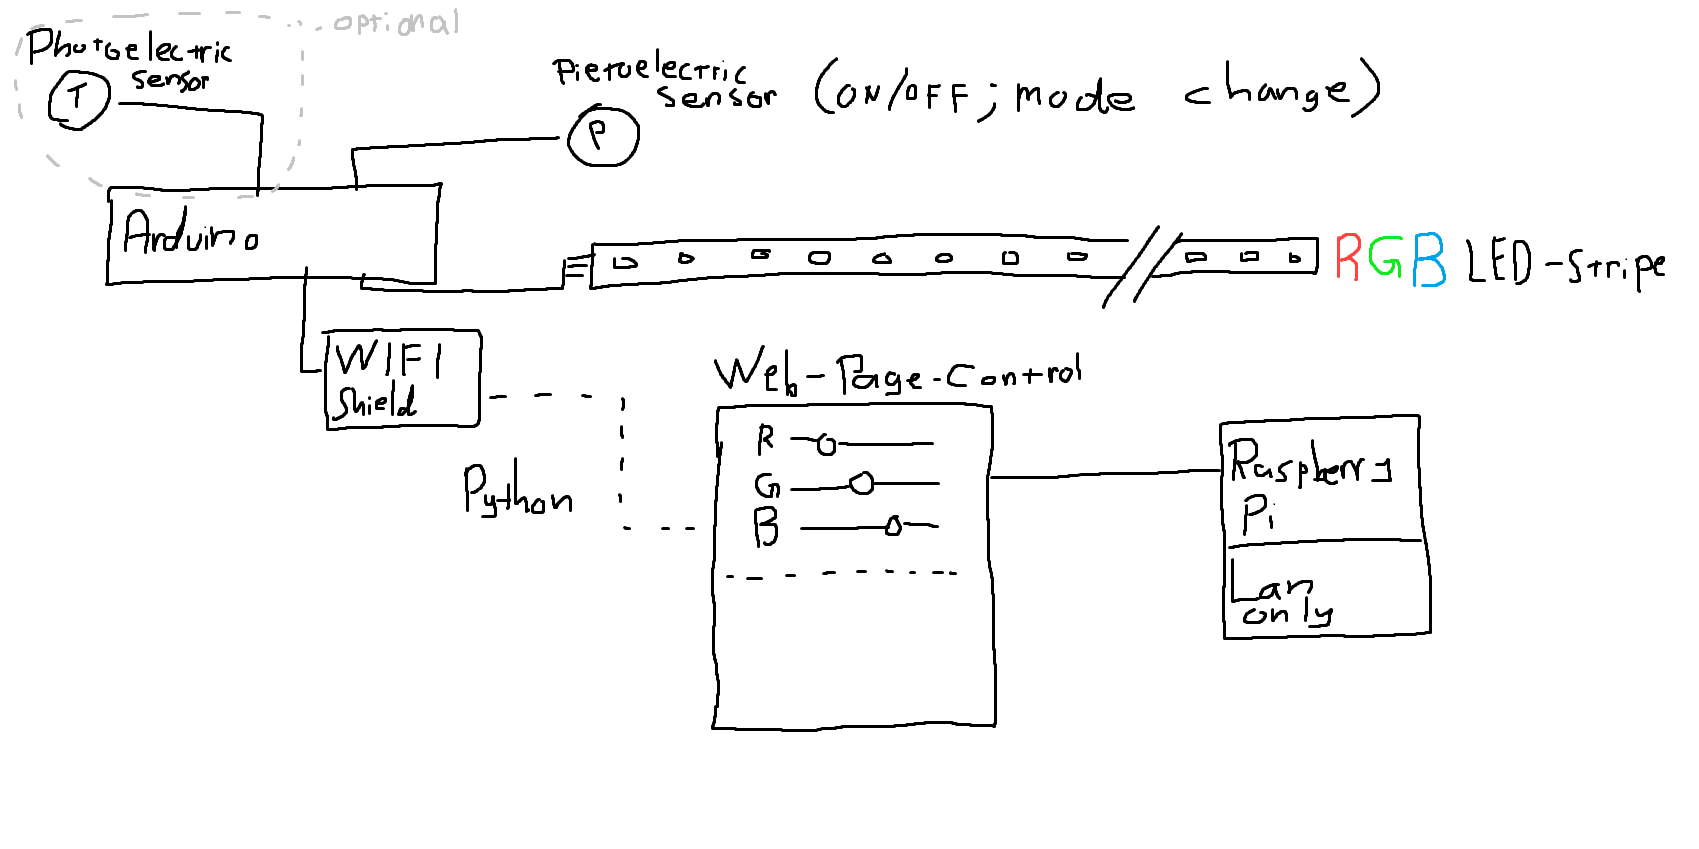 optional
Photoelectric
sensor
T
Piezoelectric
sensor (ON/OFF; mode change)
P
Arduino
RGB LED-Stripe
WIFI
Shield
Web-Page-Control
R
G
B
Python
Raspberry
Pi
Lan
only